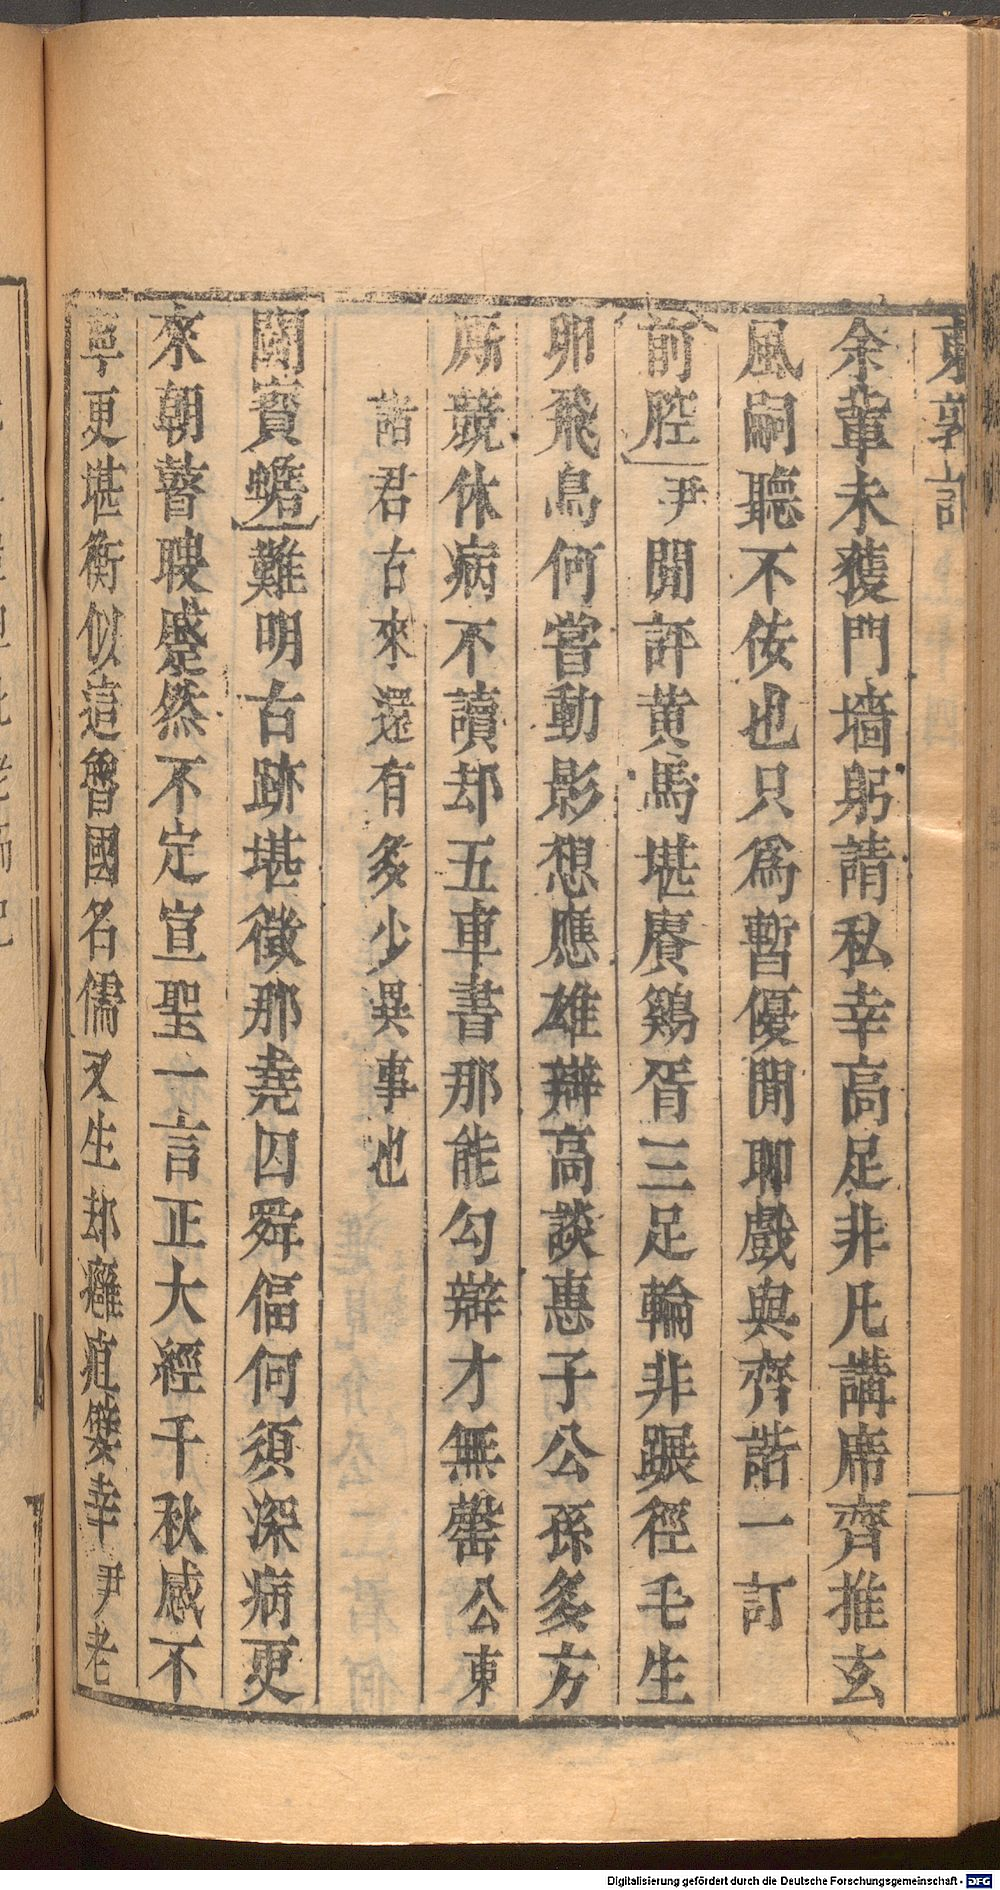 東郭記
余輩未獲門墻躬請私幸高足非凡講席齊推玄
風嗣聽不佞也只爲暫優閒聊戲與齊諧一訂
前腔尹閒評黃馬堪賡鷄胥三足輪非蹍徑毛生
卵飛鳥何嘗動影想應雄辯高談惠子公孫多方
厮競休病不讀却五車書那能勾辯才無罄公東
諸君古來還有多少異事也
鬭寶蟾難明古跡堪徵那堯囚舜偪何須深病更
來朝瞽瞍蹙然不定宣聖一言正大經千秋感不
寧更堪衡似這魯國名儒又生却癰疽嬖幸尹老
Digitalisierung gefördert durch die Deutsche Forschungsgemeinschaft - DFG